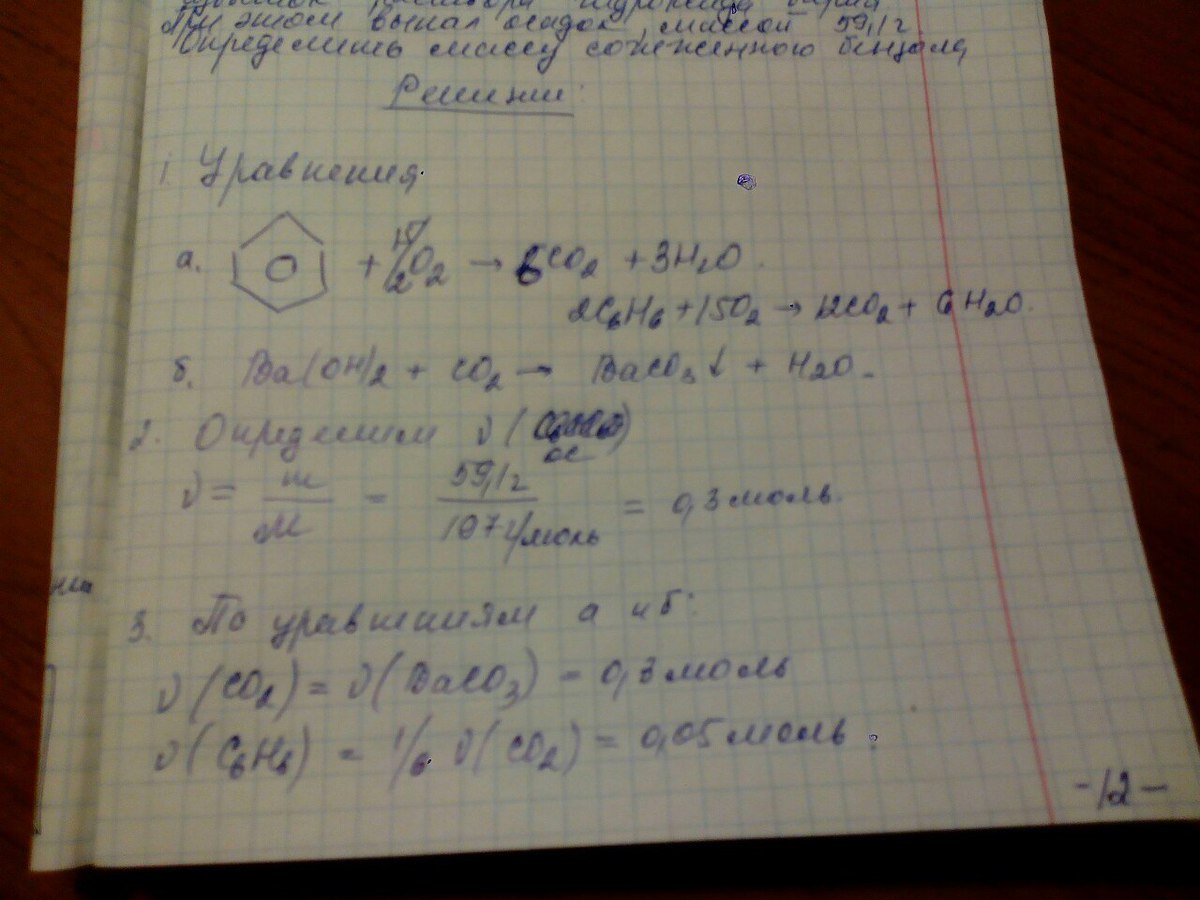 раствора гидроксида бария
При этом выпал осадок, массой 59,1 г
Определить массу сожженного бензола
Решение:
1. Уравнения
а. + 15/2 O2 → 6CO2 + 3H2O.
2C6H6 + 15O2 → 12CO2 + 6H2O.
б. Ba(OH)2 + CO2 → BaCO3↓ + H2O.
2. Определяем ν(
ос
ν = m/M = 59,1 г/197 г/моль = 0,3 моль.
3. По уравнениям а и б:
ν(CO2) = ν(BaCO3) = 0,3 моль
ν(C6H6) = 1/6 ν(CO2) = 0,05 моль.
-12-